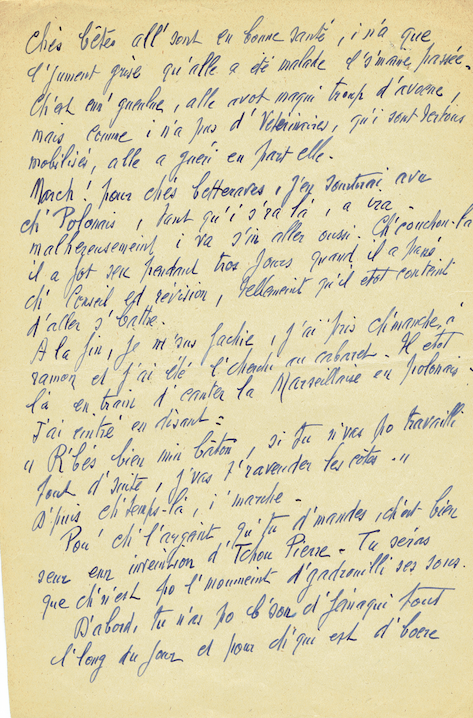 Chés bêtes all' sont en bonne santé, i n'a que
l'jument grise qu'alle a été malade l's'maine passée.
Ch'est enn' gueulue, alle avot maqui troup d'avoene,
mais comme i n'a pas d'Vétérinaires, qu'i sont tertous
mobilisés, alle a guéri en part elle.
March' ! pour chés betteraves, j'ep sontirai avu
ch'Polonais, tant qu'i s'ra là, a ira -
malhereusement i va s'in aller oussi. Ch'couchon-là
il a fot seu pendant tros jours quand il a passé
ch'Conseil ed révision, tellement qu'il etot contint
d'aller s'battre.
A la fin, je m'sus fachié, j'ai pris ch'manche à
ramon et j'ai été l'cherchu au cabaret. Il etot
là en train d'canter la Marseillaise en polonais.
J'ai rintré en disant :
" R'bés bien min bâton, si tu n'vas po travailli
tout d'suite, j'vas t'ravender les côtes. "
D'puis ch'temps-là, i' marche -
Pou' ch'l'argent qu'tu d'mandes, ch'est bien
seur enn invention d'Tchou Pierre - Tu séras
que ch'n'est po l'moument d'gadrouilli ses sous.
D'abord, tu n'as po b'soin d'fénaqui tout
l'long du jour et pour ch'qui est d'boere